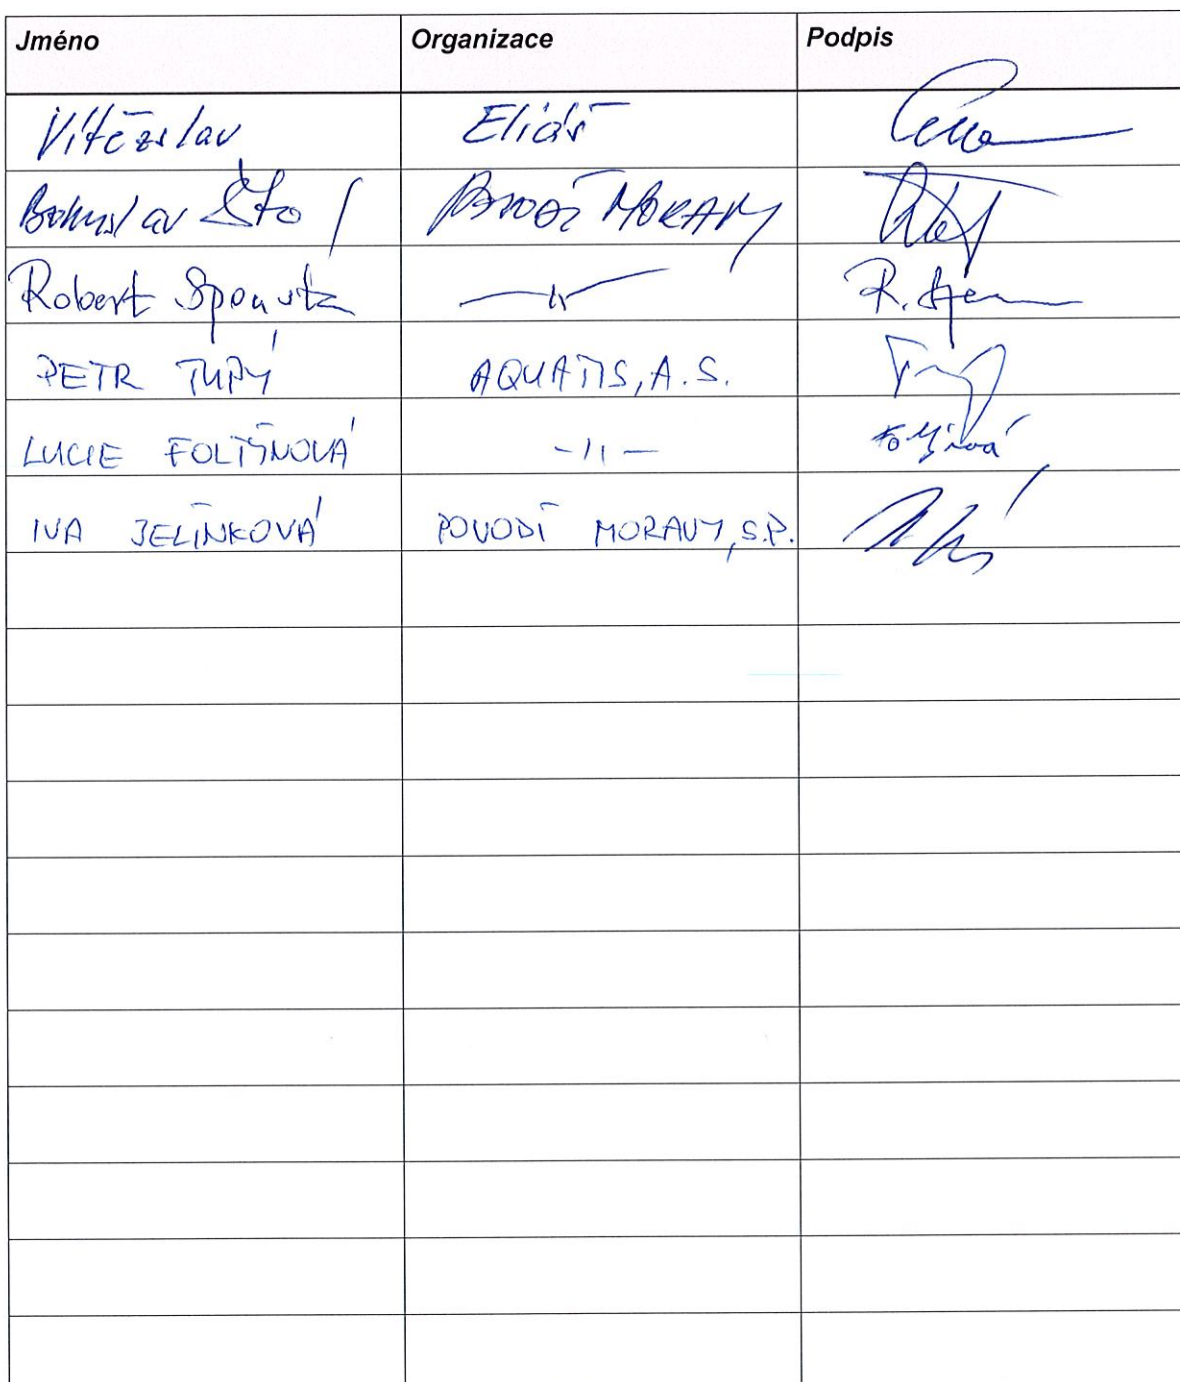 Jméno Organizace Podpis
Vítězslav Eliáš
Bohuslav Što
Robert -"- R.
PETR TUPÝ AQUATIS, A.S.
LUCIE FOLTÝNOVÁ -"- Foltýnová
IVA JELÍNKOVÁ POVODÍ MORAVY, S.P.